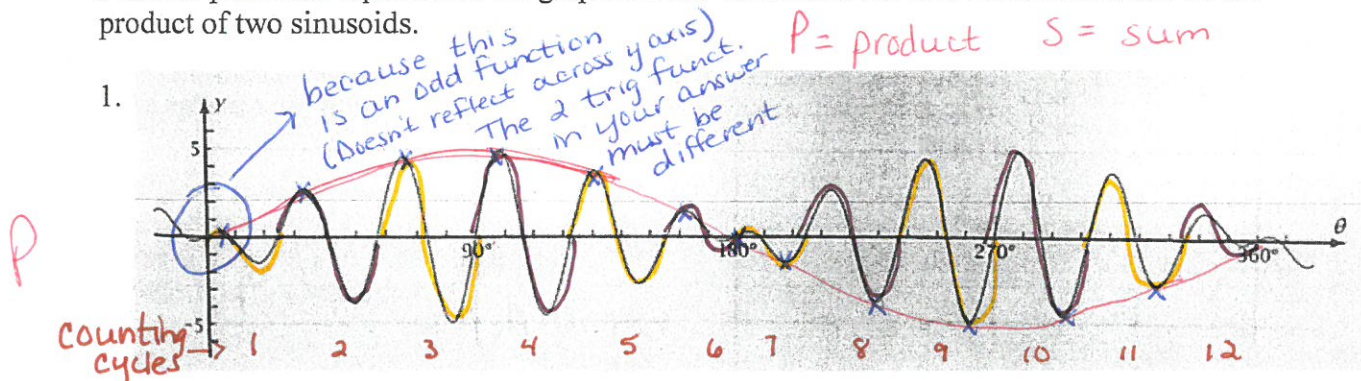 product of two sinusoids.
P = product S = sum
because this
is an odd function
(Doesn't reflect across y axis)
The 2 trig funct.
in your answer
must be
different
1.
y
5
90°
180°
270°
360°
θ
-5
P
counting
cycles →
1 2 3 4 5 6 7 8 9 10 11 12